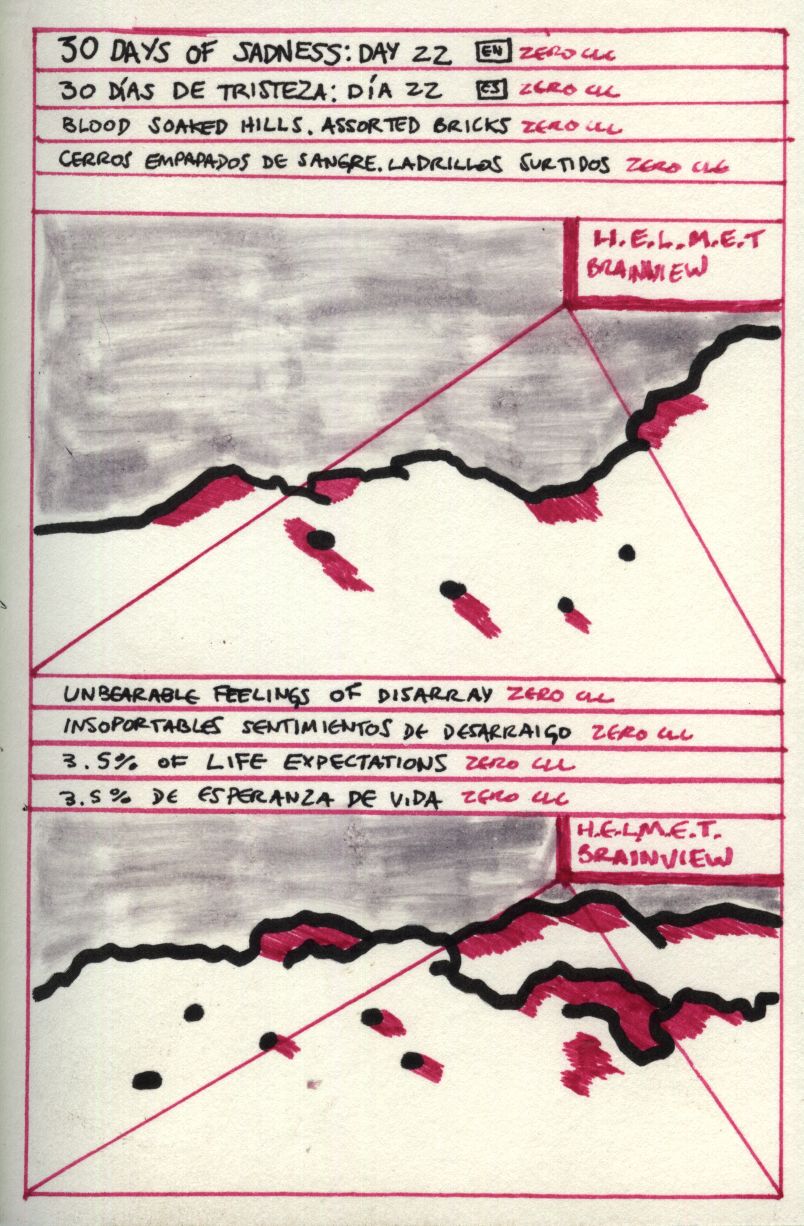 30 DAYS OF SADNESS: DAY 22 EN ZERO
30 DÍAS DE TRISTEZA: DÍA 22 ES ZERO
BLOOD SOAKED HILLS. ASSORTED BRICKS ZERO
CERROS EMPAPADOS DE SANGRE. LADRILLOS SURTIDOS ZERO
H.E.L.M.E.T
BRAINVIEW
UNBEARABLE FEELINGS OF DISARRAY ZERO
INSOPORTABLES SENTIMIENTOS DE DESARRAIGO ZERO
3.5% OF LIFE EXPECTATIONS ZERO
3.5% DE ESPERANZA DE VIDA ZERO
H.E.L.M.E.T.
BRAINVIEW